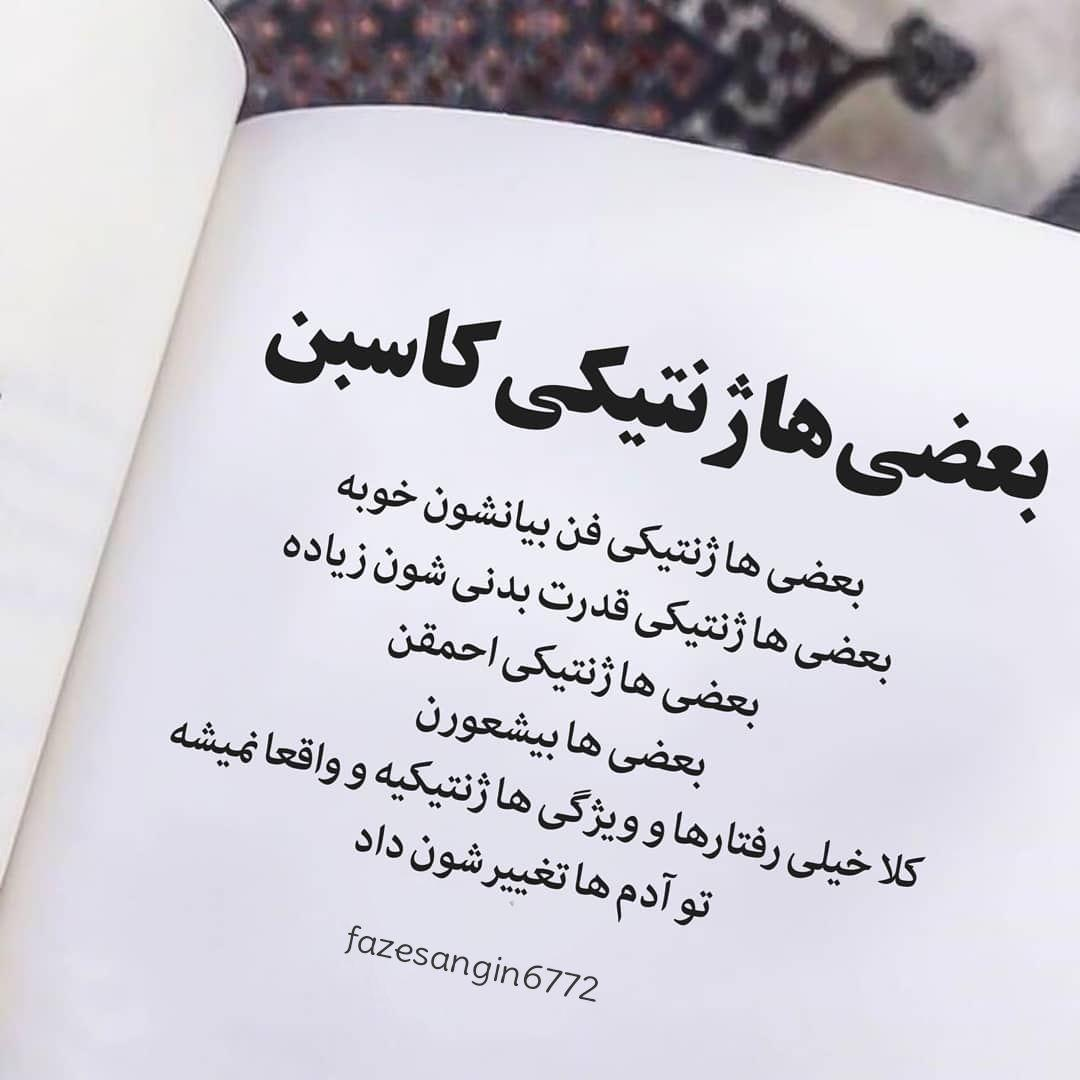 بعضی ها ژنتیکی کاسبن
بعضی ها ژنتیکی فن بیانشون خوبه
بعضی ها ژنتیکی قدرت بدنی شون زیاده
بعضی ها ژنتیکی احمقن
بعضی ها بیشعورن
کلا خیلی رفتارها و ویژگی ها ژنتیکیه و واقعا نمیشه
تو آدم ها تغییر شون داد
fazesangin6772